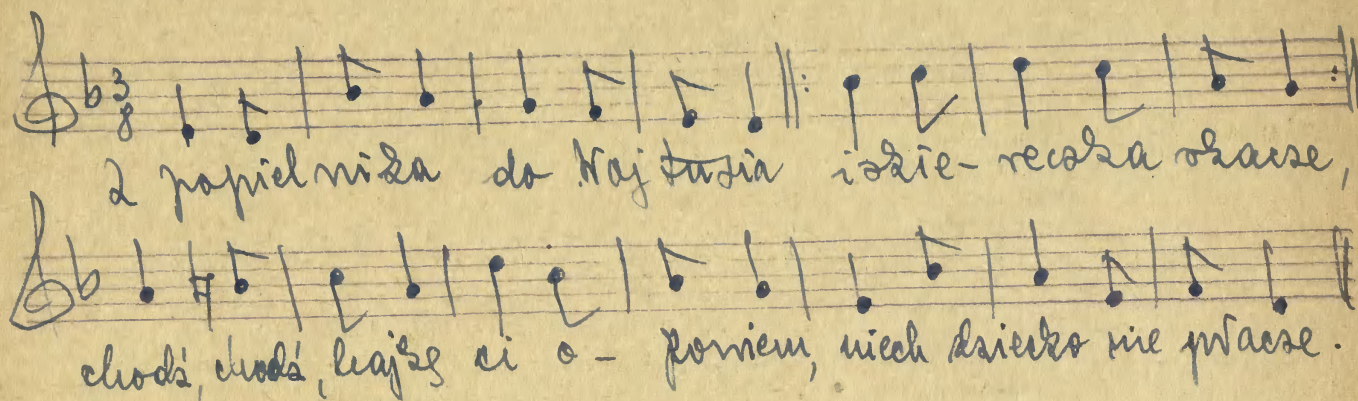 Z popielnika do Wojtusia iskie-reczka skacze,
chodź, chodź, bajkę ci o-powiem, niech dziecko nie płacze.